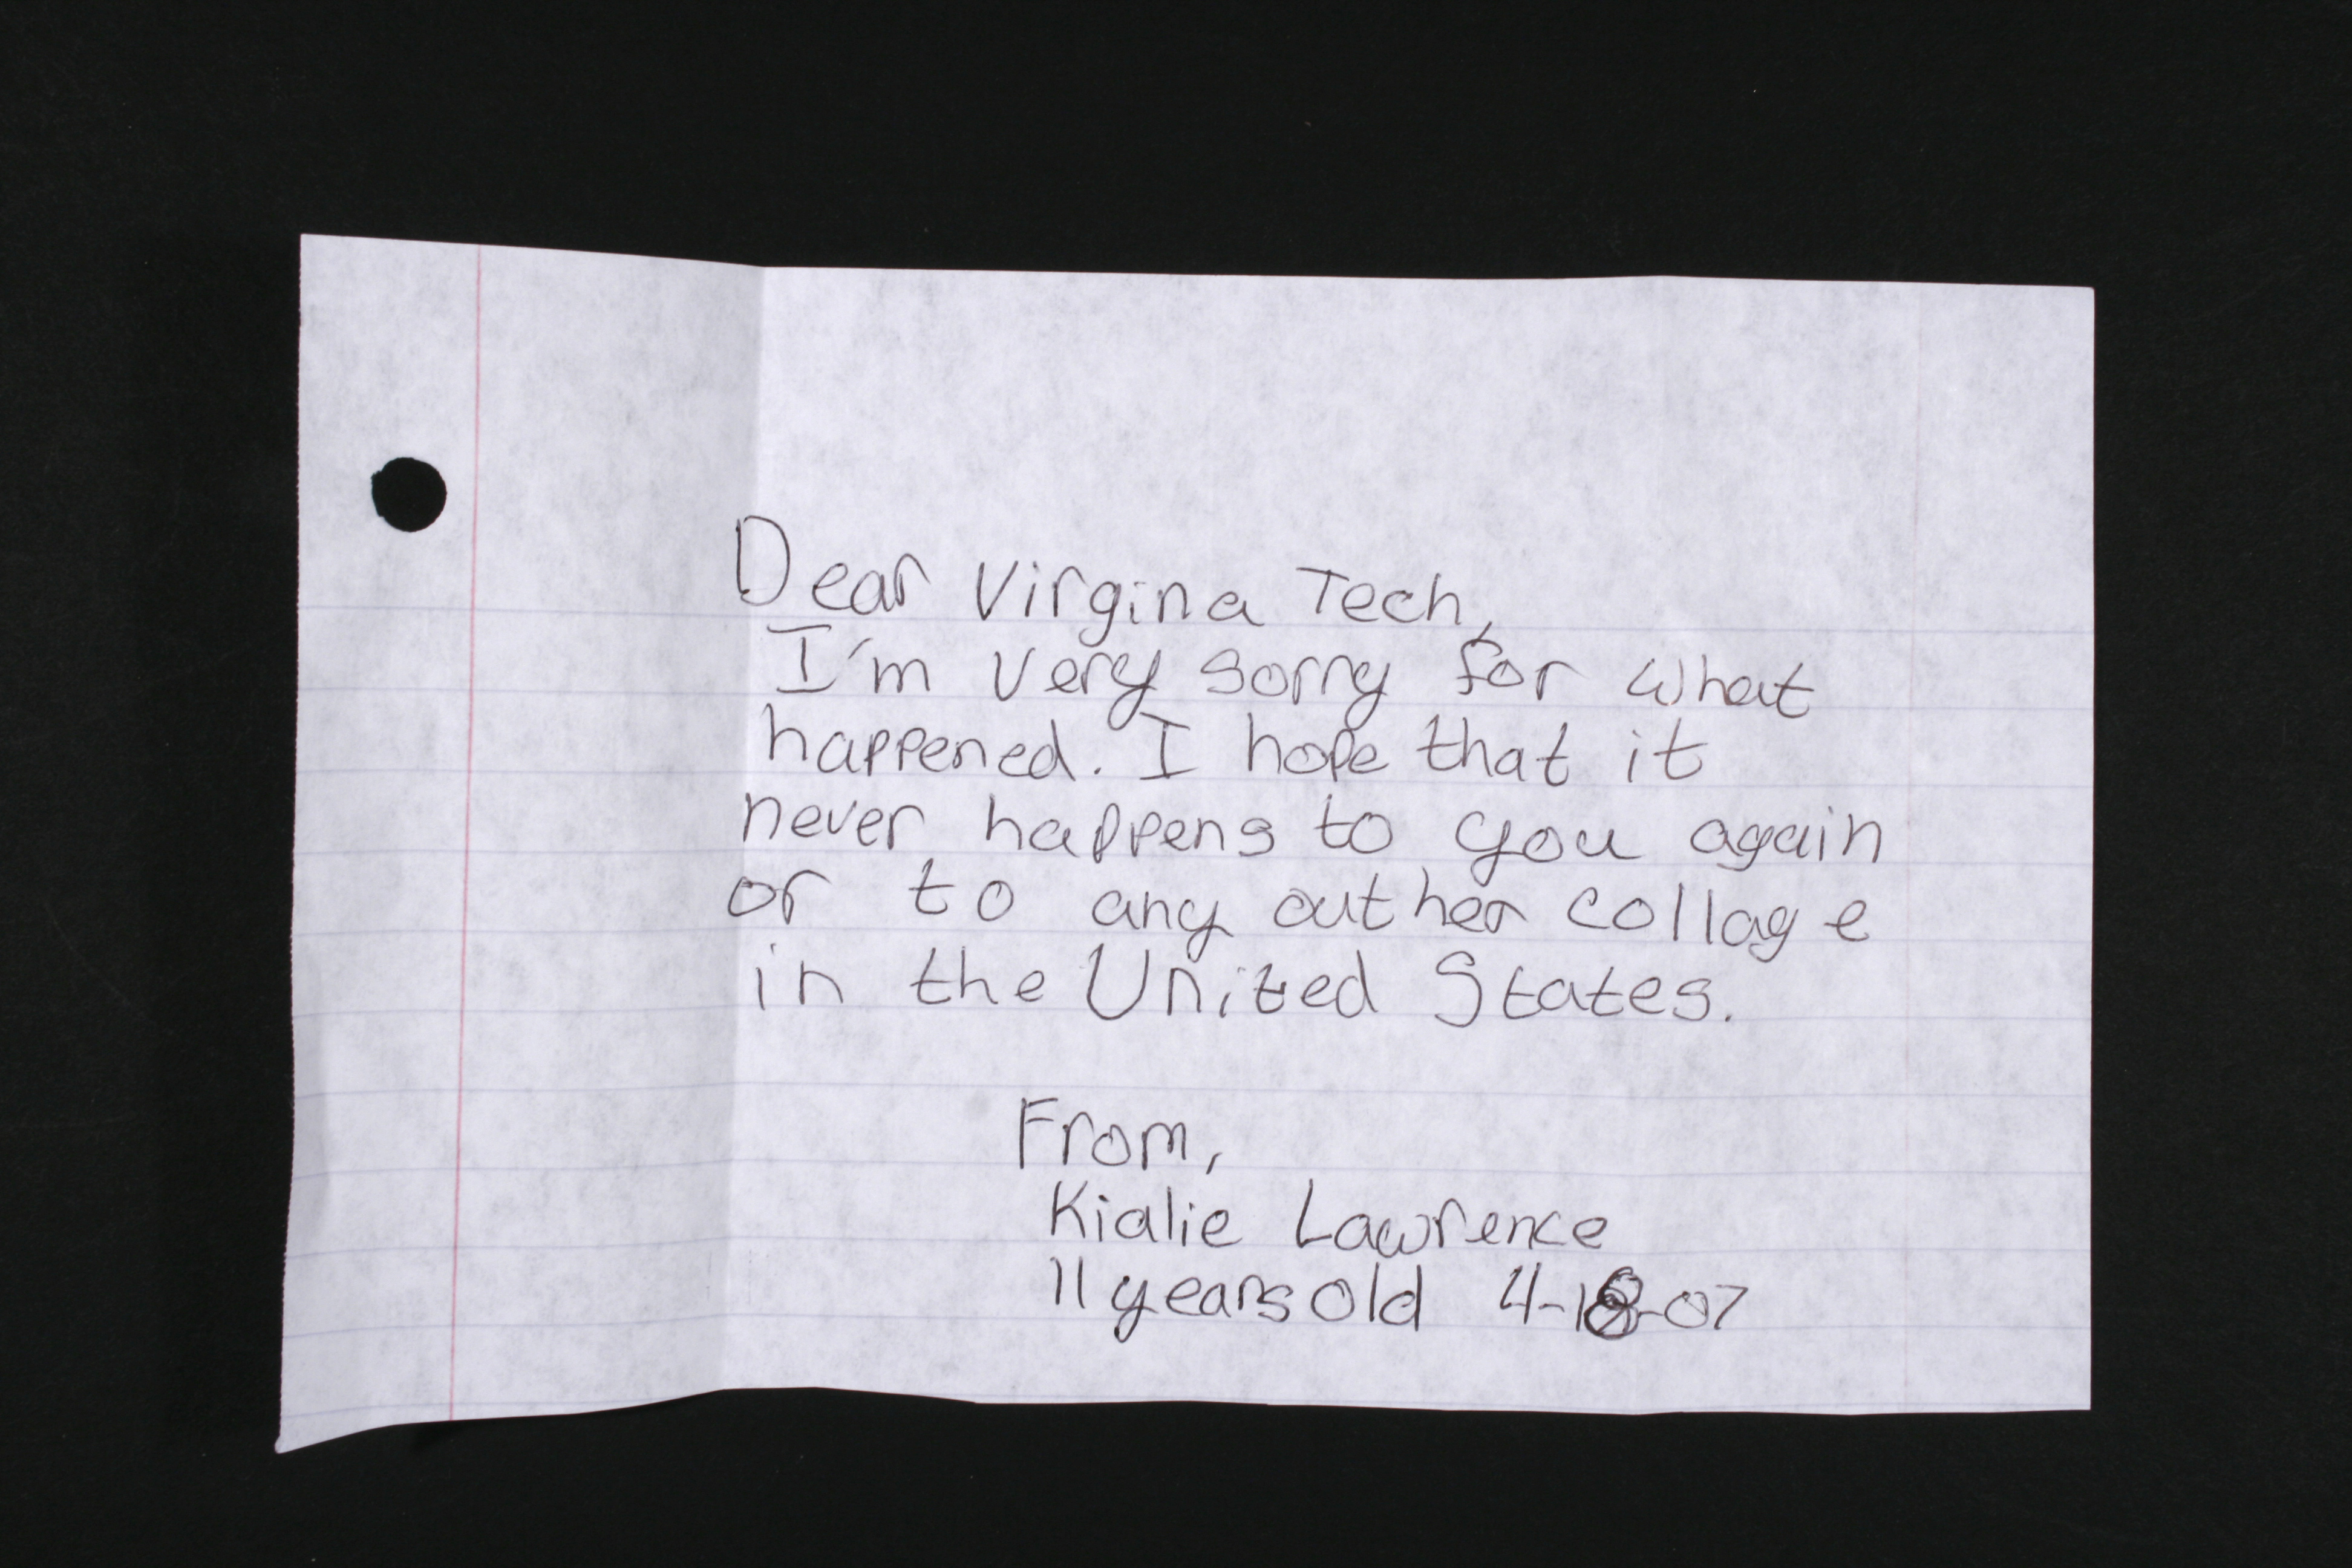 Dear Virgina Tech,
I'm very sorry for what
happened. I hope that it
never happens to you again
or to any outher collage
in the United States.
From,
Kialie Lawrence
11 years old 4-18-07